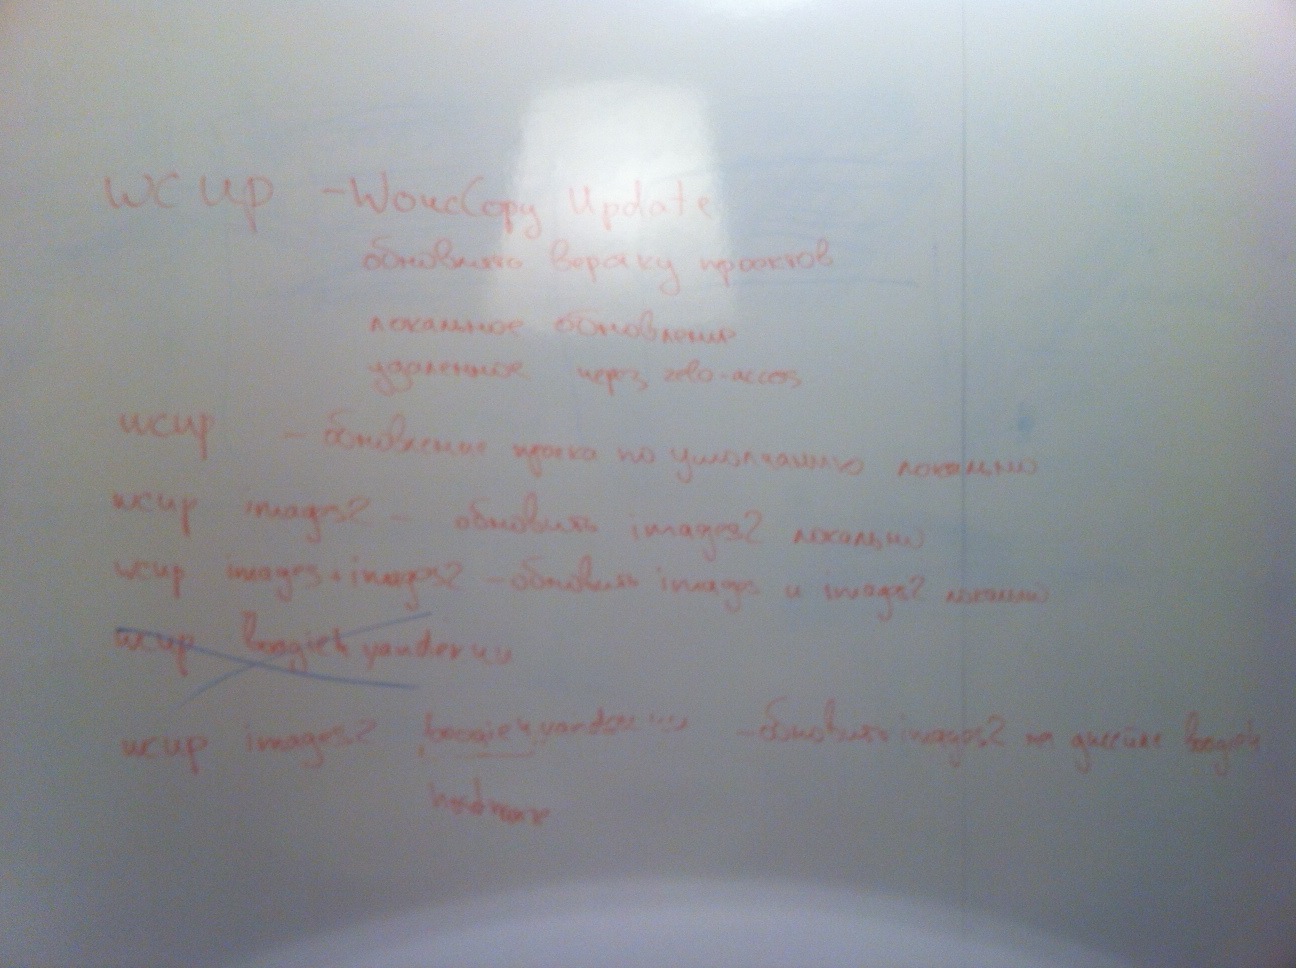 wcup - WorkCopy Update
обновлять верстку проектов
локальное обновление
удаленное через
wcup - обновление проекта по умолчанию локально
wcup images2 - обновить images2 локально
wcup images+images2 - обновить images и images2 локально
wcup boogieh yandex ru
wcup images2 boogieh.yandex.ru - обновить images2 на boogieh
hostname